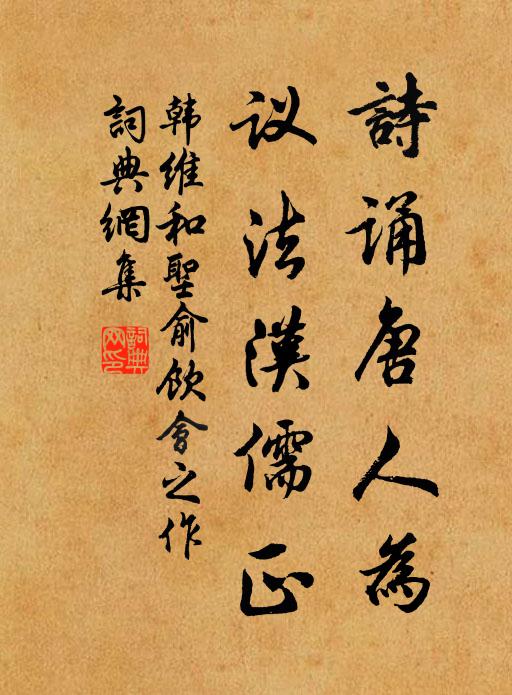 詩诵唐人為
议法漢儒正
韩維和聖俞飲會之作
詞典網集
詞典
网印